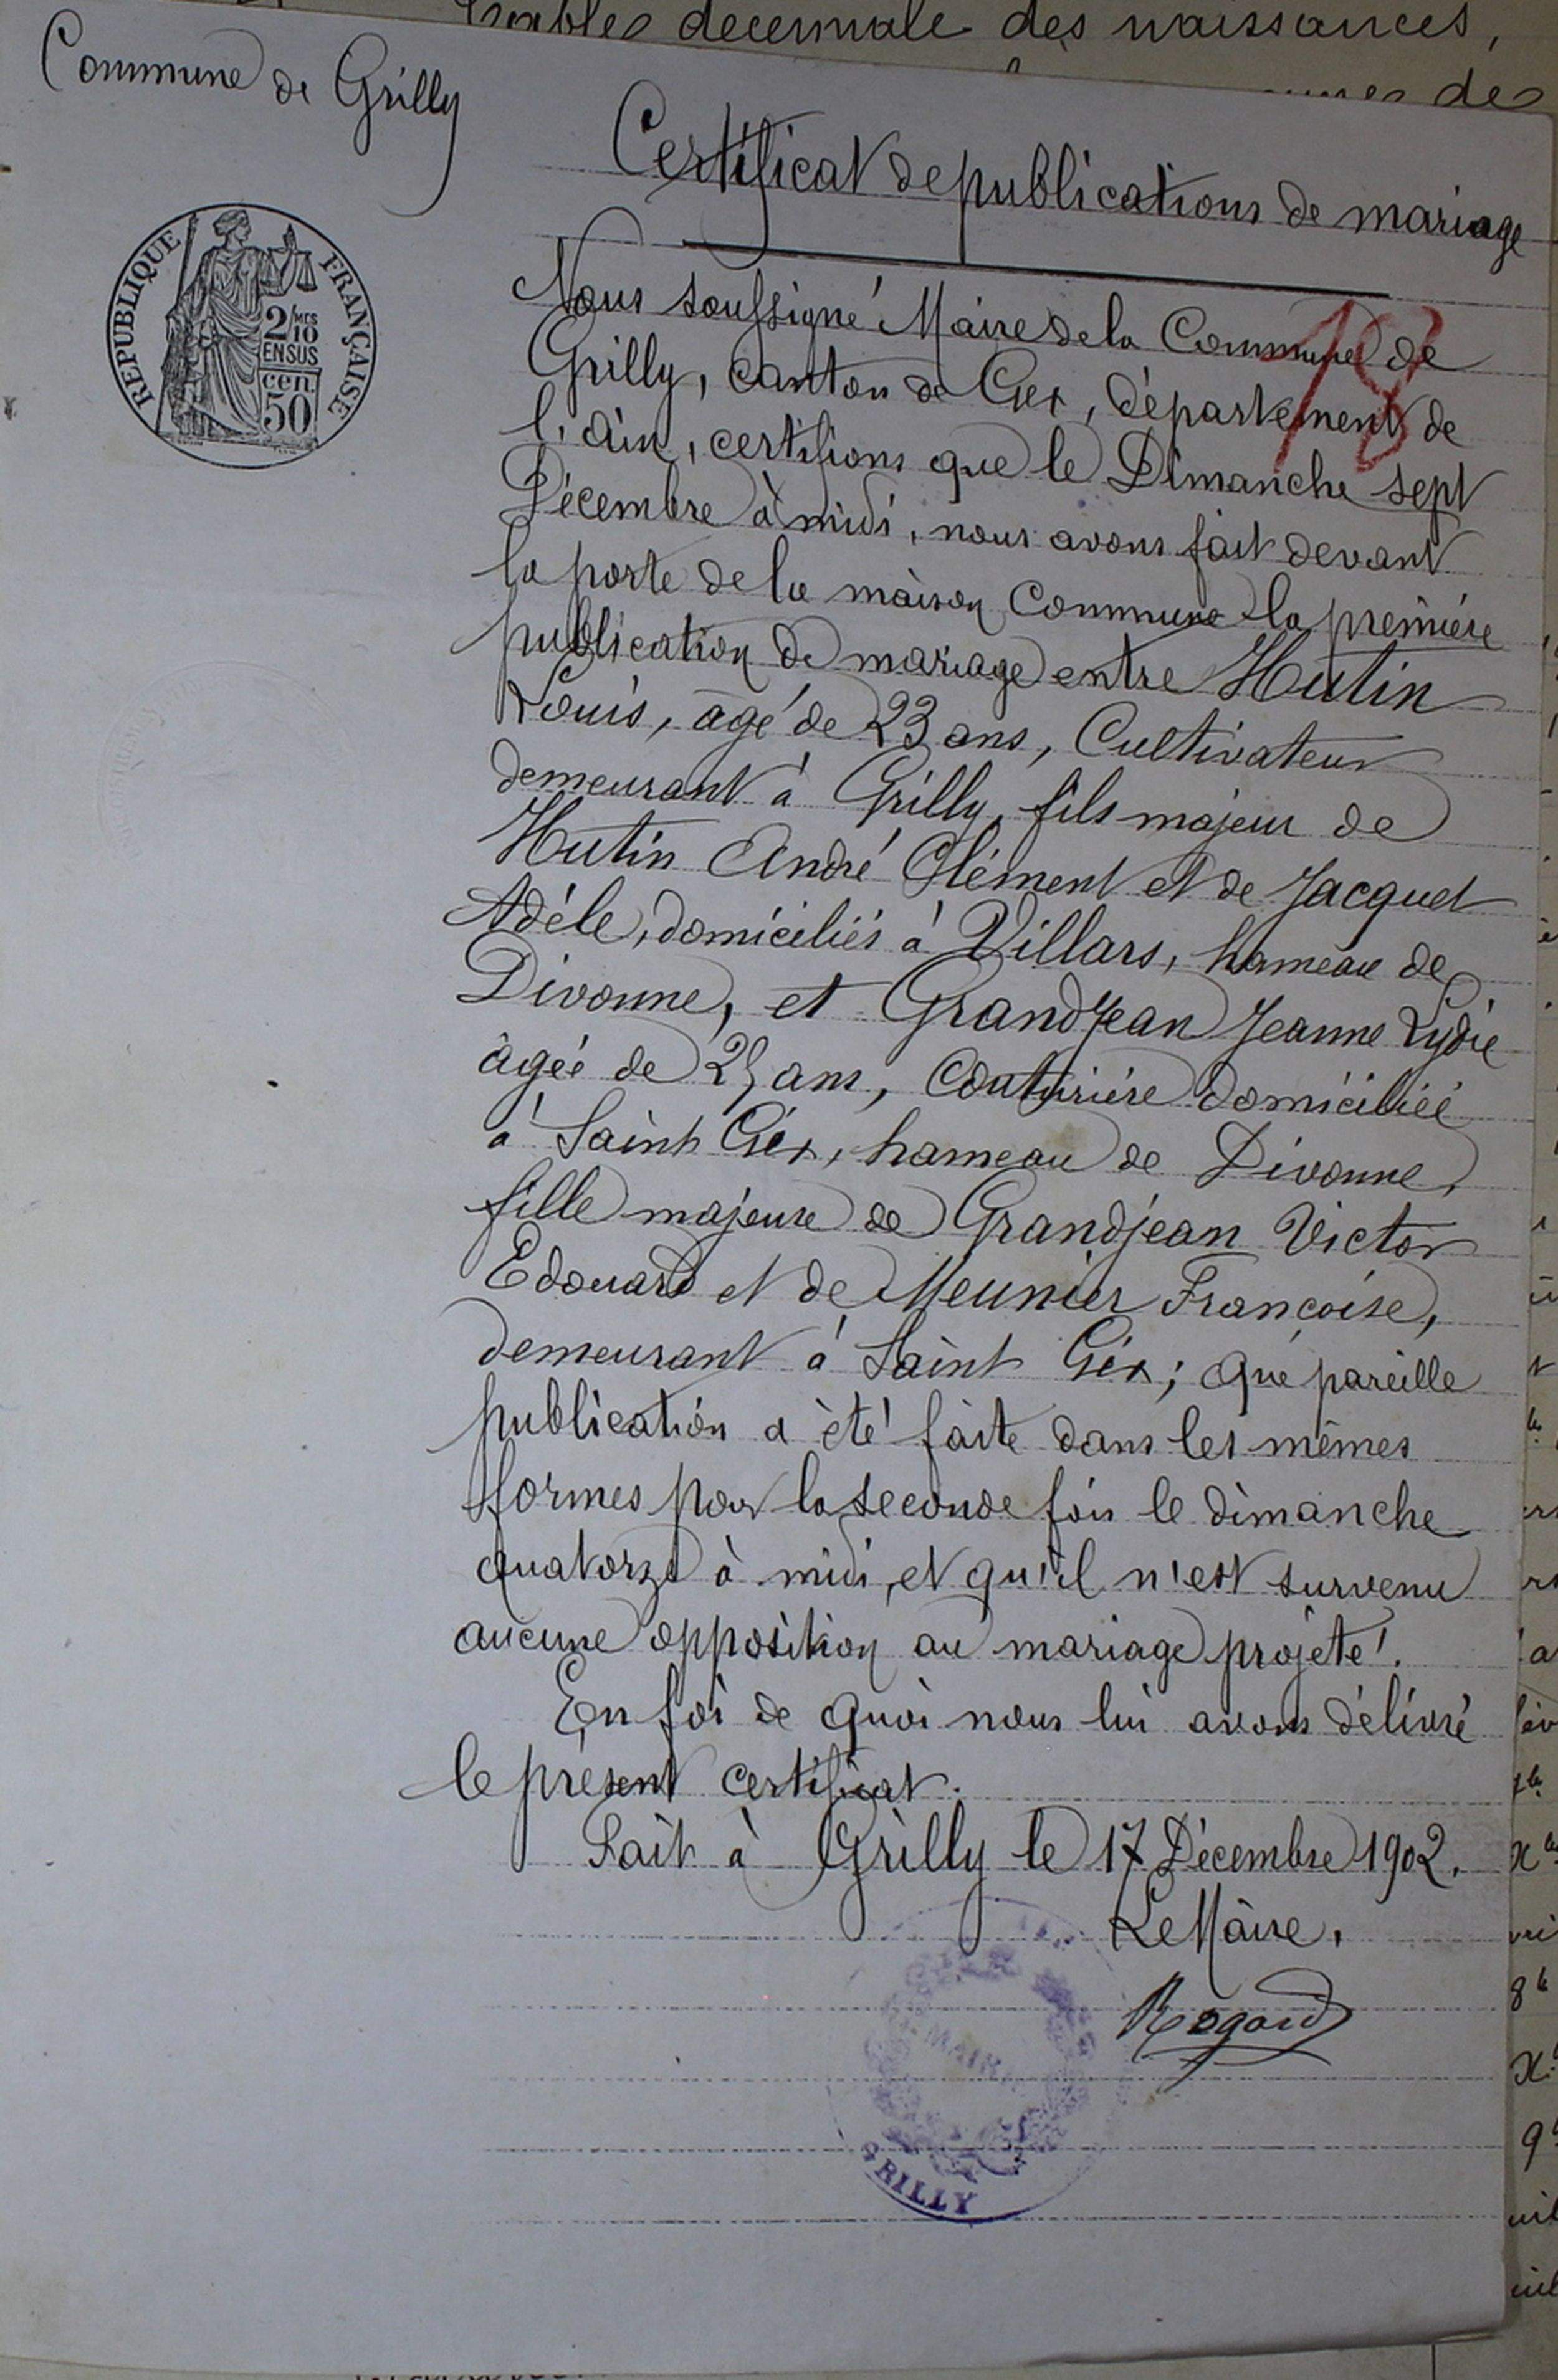 décennale des naissances,
des
Commune de Grilly
Certificat de publications de mariage
RÉPUBLIQUE FRANÇAISE
2/10 MES
EN SUS
cen.
50
18
Nous soussigné Maire de la Commune de
Grilly, canton de Gex, département de
l'Ain, certifions que le Dimanche sept
Décembre à midi, nous avons fait devant
la porte de la maison Commune la première
publication de mariage entre Hutin
Louis, âgé de 23 ans, Cultivateur
demeurant à Grilly, fils majeur de
Hutin André Clément et de Jacquet
Adèle, domiciliés à Villars, hameau de
Divonne, et GrandJean Jeanne Lydie
âgée de 25 ans, Couturière domiciliée
à Saint Gix, hameau de Divonne,
fille majeure de Grandjean Victor
Edouard et de Meunier Françoise,
demeurant à Saint Gix; que pareille
publication a été faite dans les mêmes
formes pour la seconde fois le dimanche
quatorze à midi, et qu'il n'est survenu
aucune opposition au mariage projeté.
En foi de quoi nous lui avons délivré
le présent certificat.
Fait à Grilly le 17 Décembre 1902.
Le Maire,
Rogard
MAIRIE
GRILLY